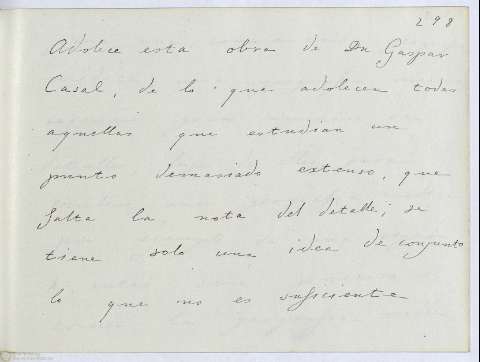 298
Adolece esta obra de Dn Gaspar
Casal, de lo que adolecen todas
aquellas que estudian un
punto demasiado extenso, que
falta la nota del detalle; se
tiene solo una idea de conjunto
lo que no es suficiente